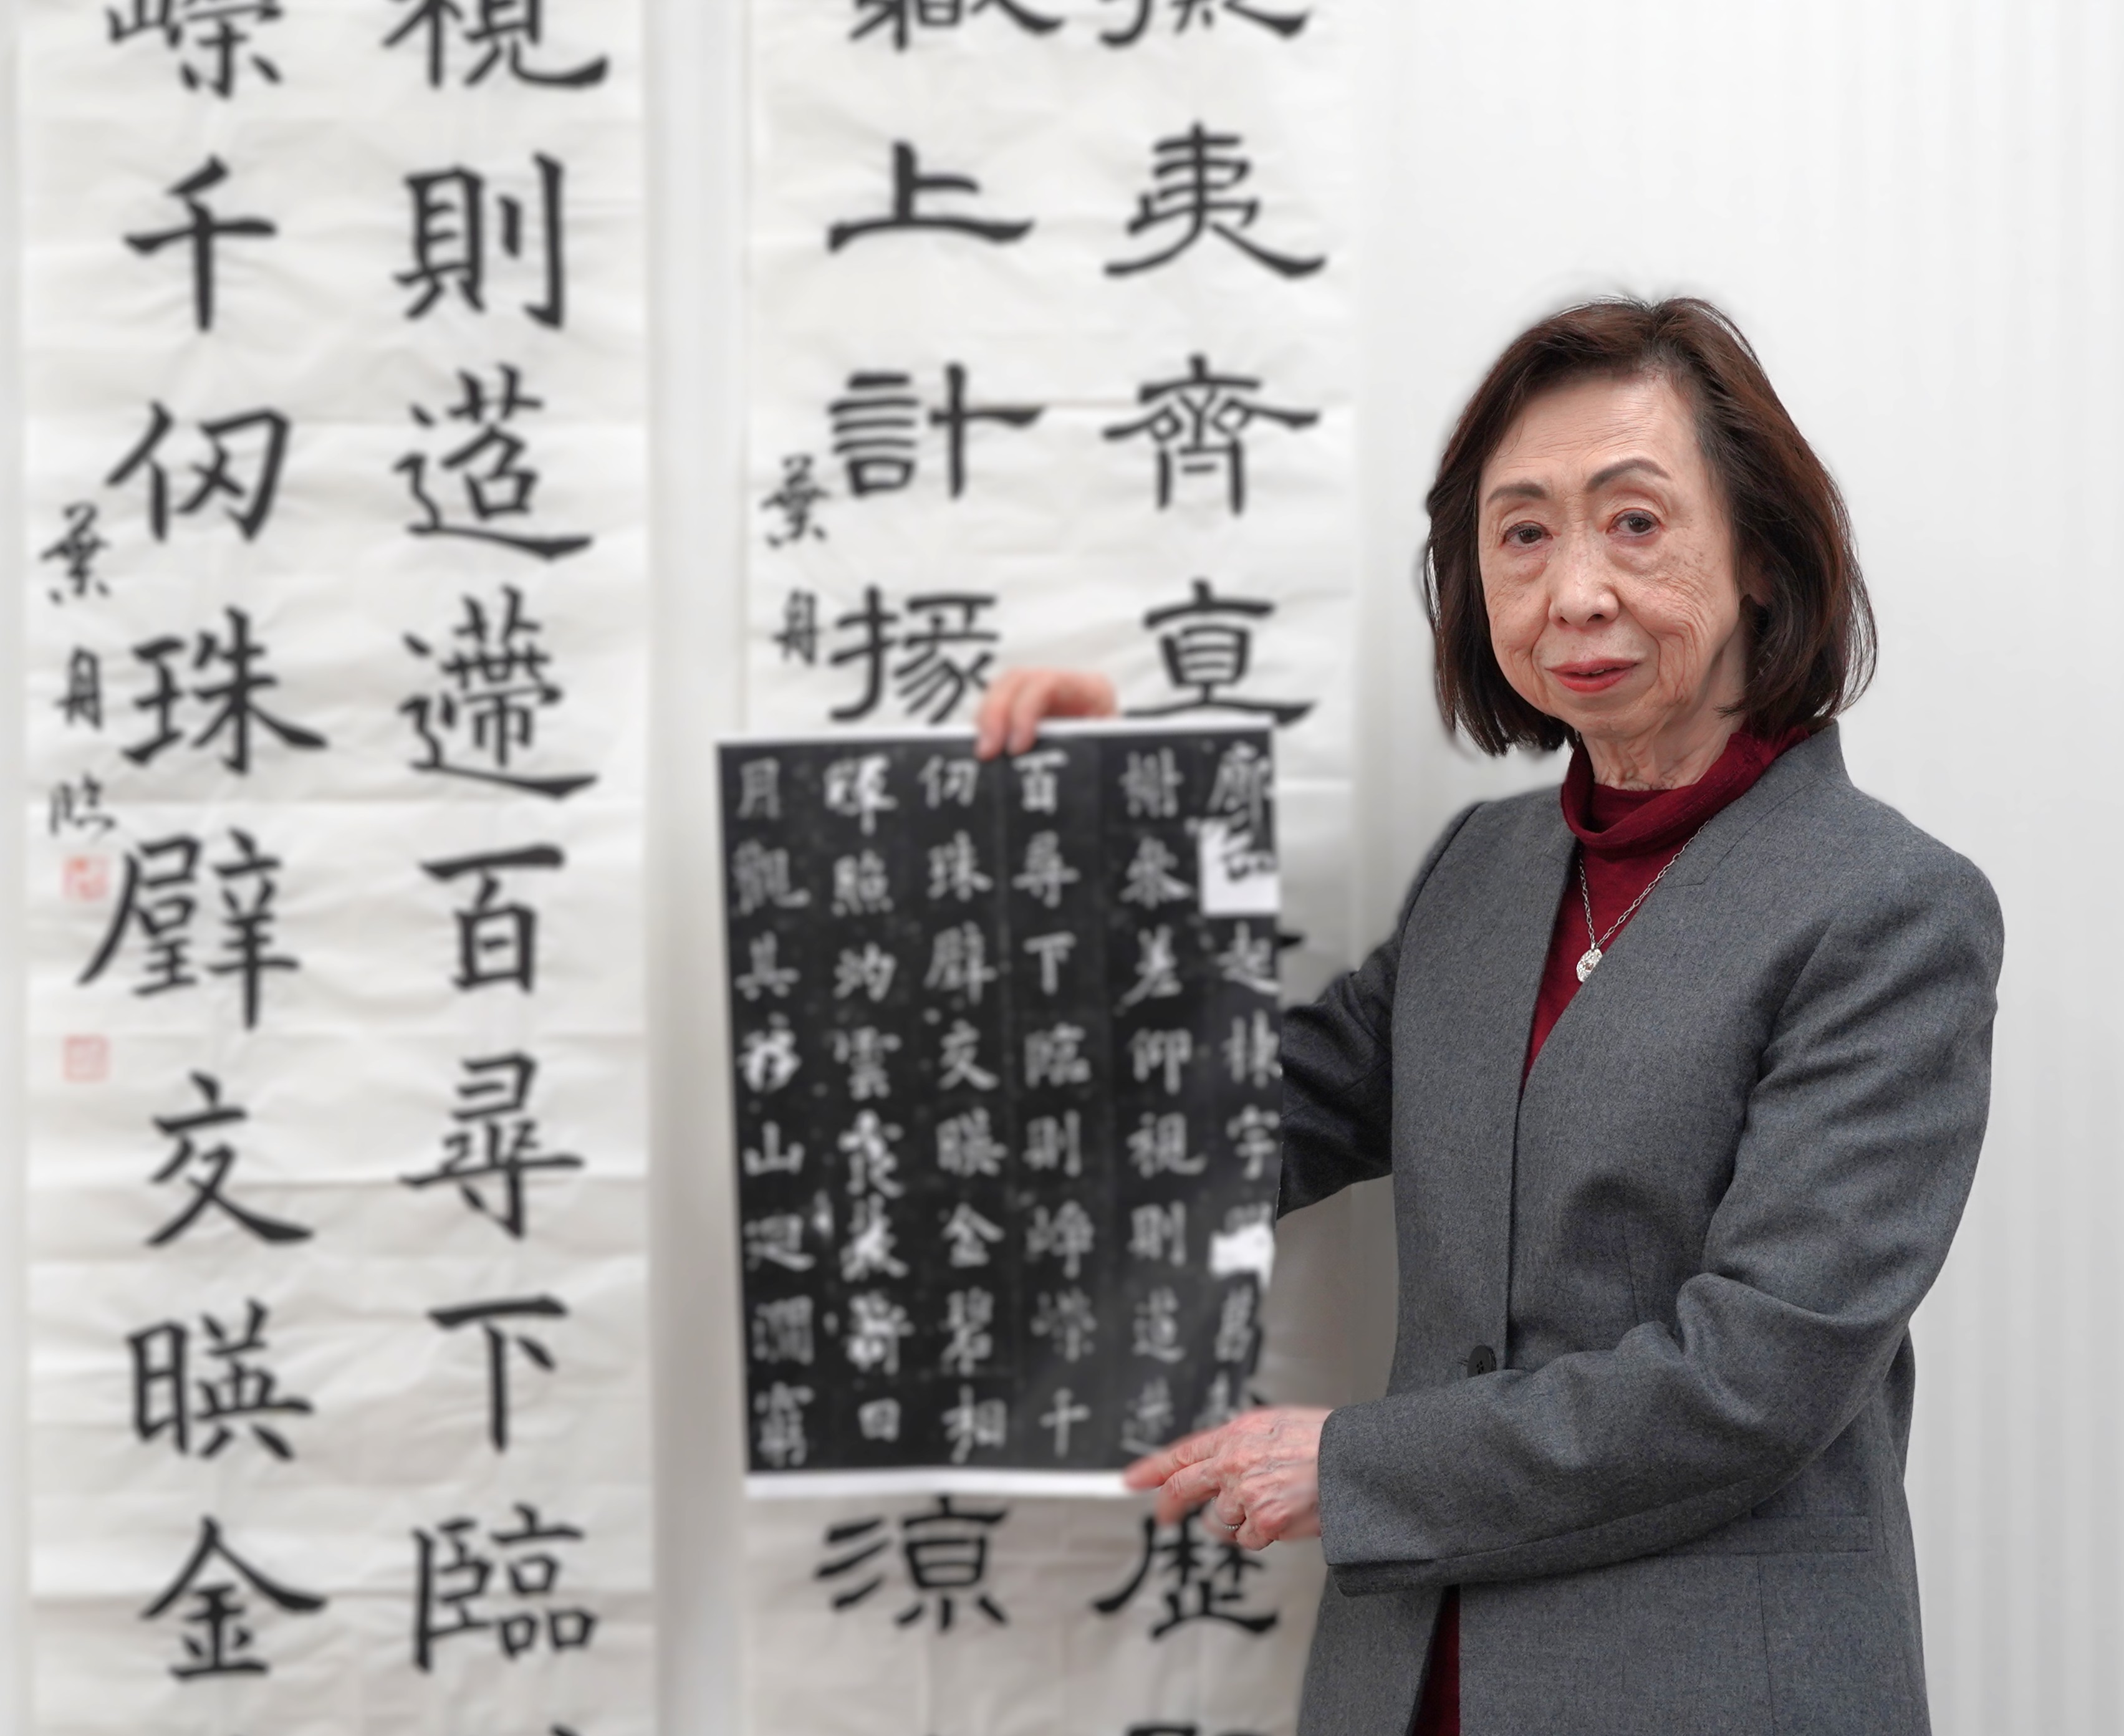 夷齊直
上計掾
歷
涼
葉舟
視則造遰百尋下臨
嶸千仞珠壁交暎金
葉舟臨
起棟宇
謝參差仰視則迢遰
百尋下臨則崢嶸千
仞珠壁交暎金碧相
暉照灼雲霞蔽虧日
月觀其移山迴澗窮